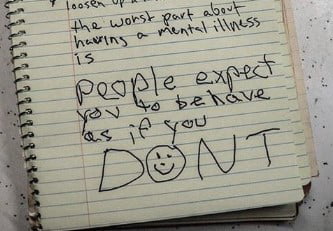 loosen up
the worst part about
having a mental illness
is
people expect
you to behave
as if you
DONT